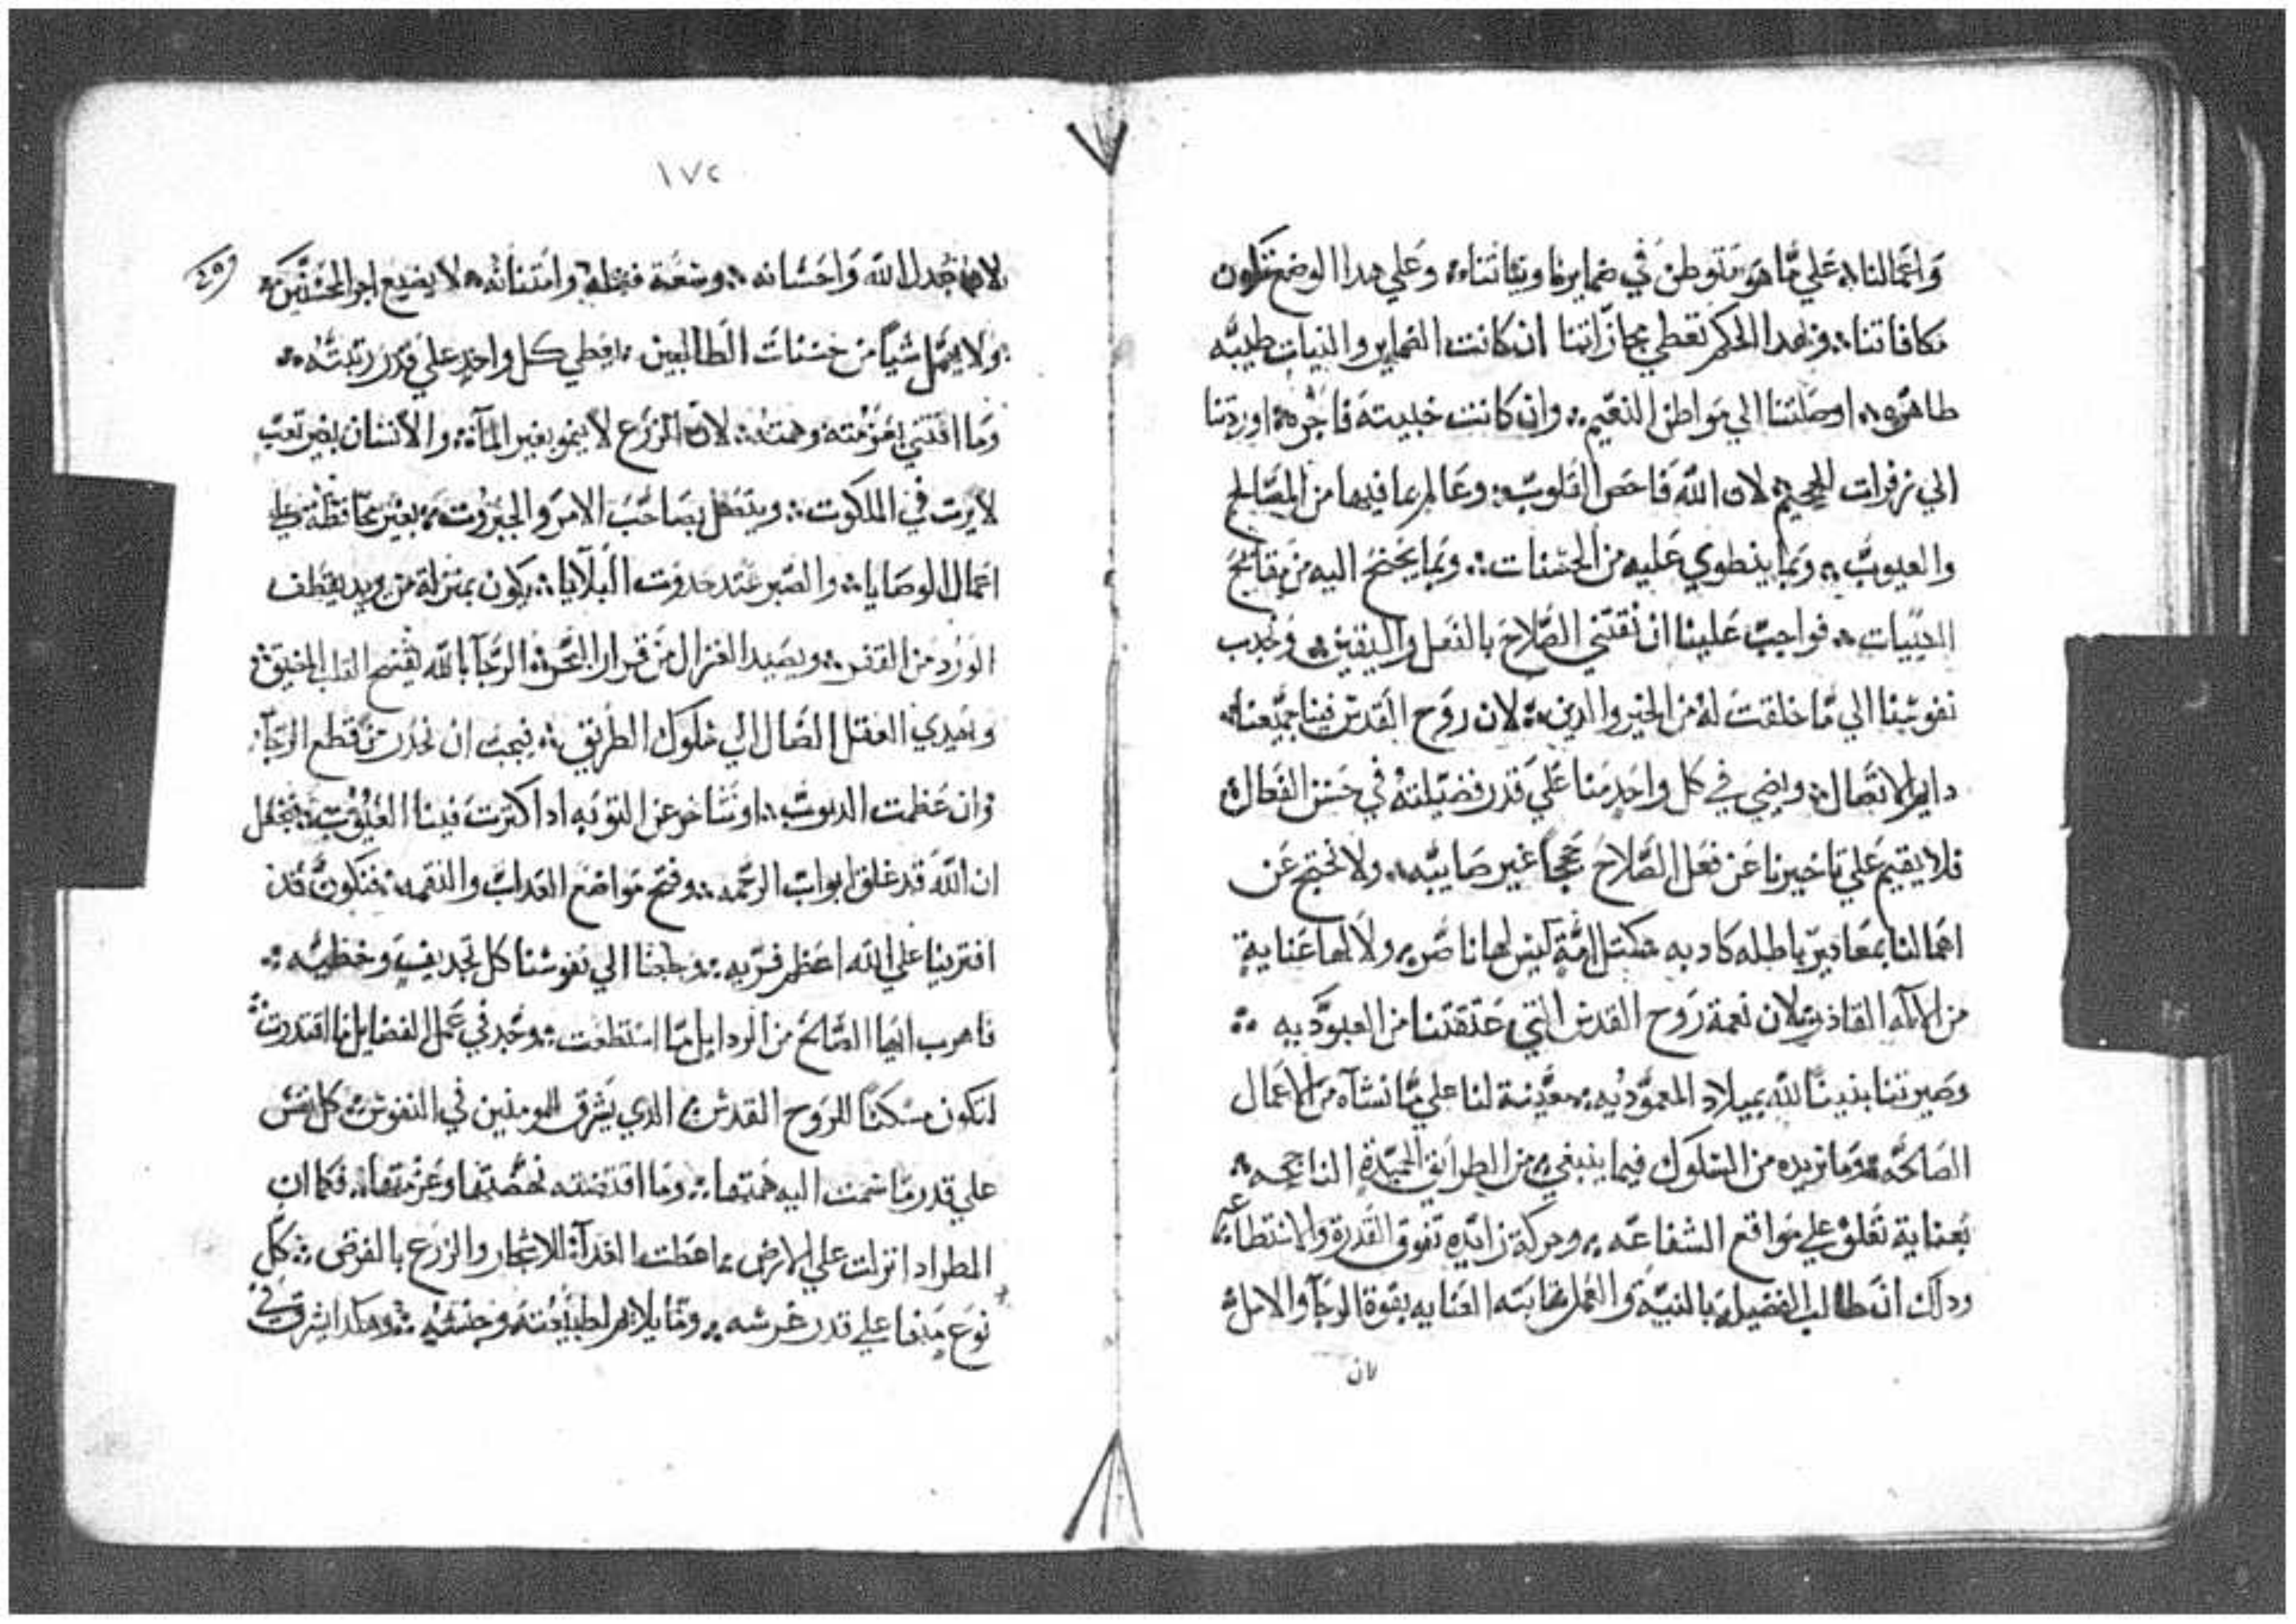 واعمالنا علي ما هو متوطن في ضمايرنا ونياتنا وعلي هدا الوضع تكون
مكافاتنا وبهدا الحكم تعطي مجازاتنا ان كانت الضماير والنيات طيبه
طاهره اوصلتنا الي مواطن النعيم وان كانت خبيته فاجره اوردتنا
الي زفرات الجحيم لان الله فاحص القلوب وعالم بما فيها من المصالح
والعيوب وبما ينطوي عليه من الحسنات وبما يجنح اليه من مقابح
السيات فواجب علينا ان نقتني الصلاح بالفعل واليقين ونجدب
نفوسنا الي ما خلقت له من الخير والدين لان روح القدس فينا جميعنا
دايم الاتصال ويضي في كل واحد منا علي قدر فضيلته في حسن الفعال
فلا يقيم علي تاخيرنا عن فعل الصلاح حججا غير صاييه ولا نحتج عن
اهمالنا بمعادير باطله كادبه كمتل امة ليس لها ناصر ولا لها عناية
من الاله القادر لان نعمة روح القدس التي عتقتنا من العبوديه
وصيرتنا بنينا لله بميلاد المعموديه معينة لنا علي ما نشآه من الاعمال
الصالحه وما نريده من السلوك فيما ينبغي من الطرايق الحميدة الناجحه
بعناية تفلق علي مواقع الشفاعه وحركة زايده تفوق القدرة والاستطاعه
ودلك ان طالب الفضيله بالنية والعمل تهابته العنايه بقوة الرجآ والامل
لان
١٧٢
لان الله واحسانه وسعة فضله وامتنانه لا يضيع اجر المحسنين
ولا يهمل شيا من حسنات الطالبين يعطي كل واحد علي قدر رتبته
وما اقتني بعزمته وهمته لان الزرع لا ينمو بغير المآء والانسان بغير تعب
لا يرت في الملكوت ويتصل بصاحب الامر والجبروت بغير محافظة علي
اعمال الوصايا والصبر عند حدوت البلايا يكون بمنزلة من يريد يقطف
الورد من القفر ويصيد الغزال من قرار البحر الرجآ بالله يفتح القلب المضيق
ويهدي العقل الضال الي سلوك الطريق فيجب ان نحدر من قطع الرجآ
وان عظمت الدنوب او نتاخر عن التوبه ادا كترت فينا العيوب فنجعل
ان الله قد غلق ابواب الرحمه وفتح مواضع العداب والنقمه فنكون قد
افترينا علي الله اعظم فريه وجلبنا الي نفوسنا كل تجديف وخطيه
فاهرب ايها الصالح من الردايل ما استطعت وجد في عمل الفضايل ما اقتدرت
لتكون مسكنا للروح القدس الدي يشرق للمومنين في النفوس كل نفس
علي قدر ما سمت اليه همتها وما اقتضته نهضتها وعزمتها فكما ان
المطر ادا نزلت علي الارض اعطت الغدآء للاشجار والزرع بالفرض كل
نوع منها علي قدر غرسه وما يلايم لطبيعته وجنسه وهكدا يشرق